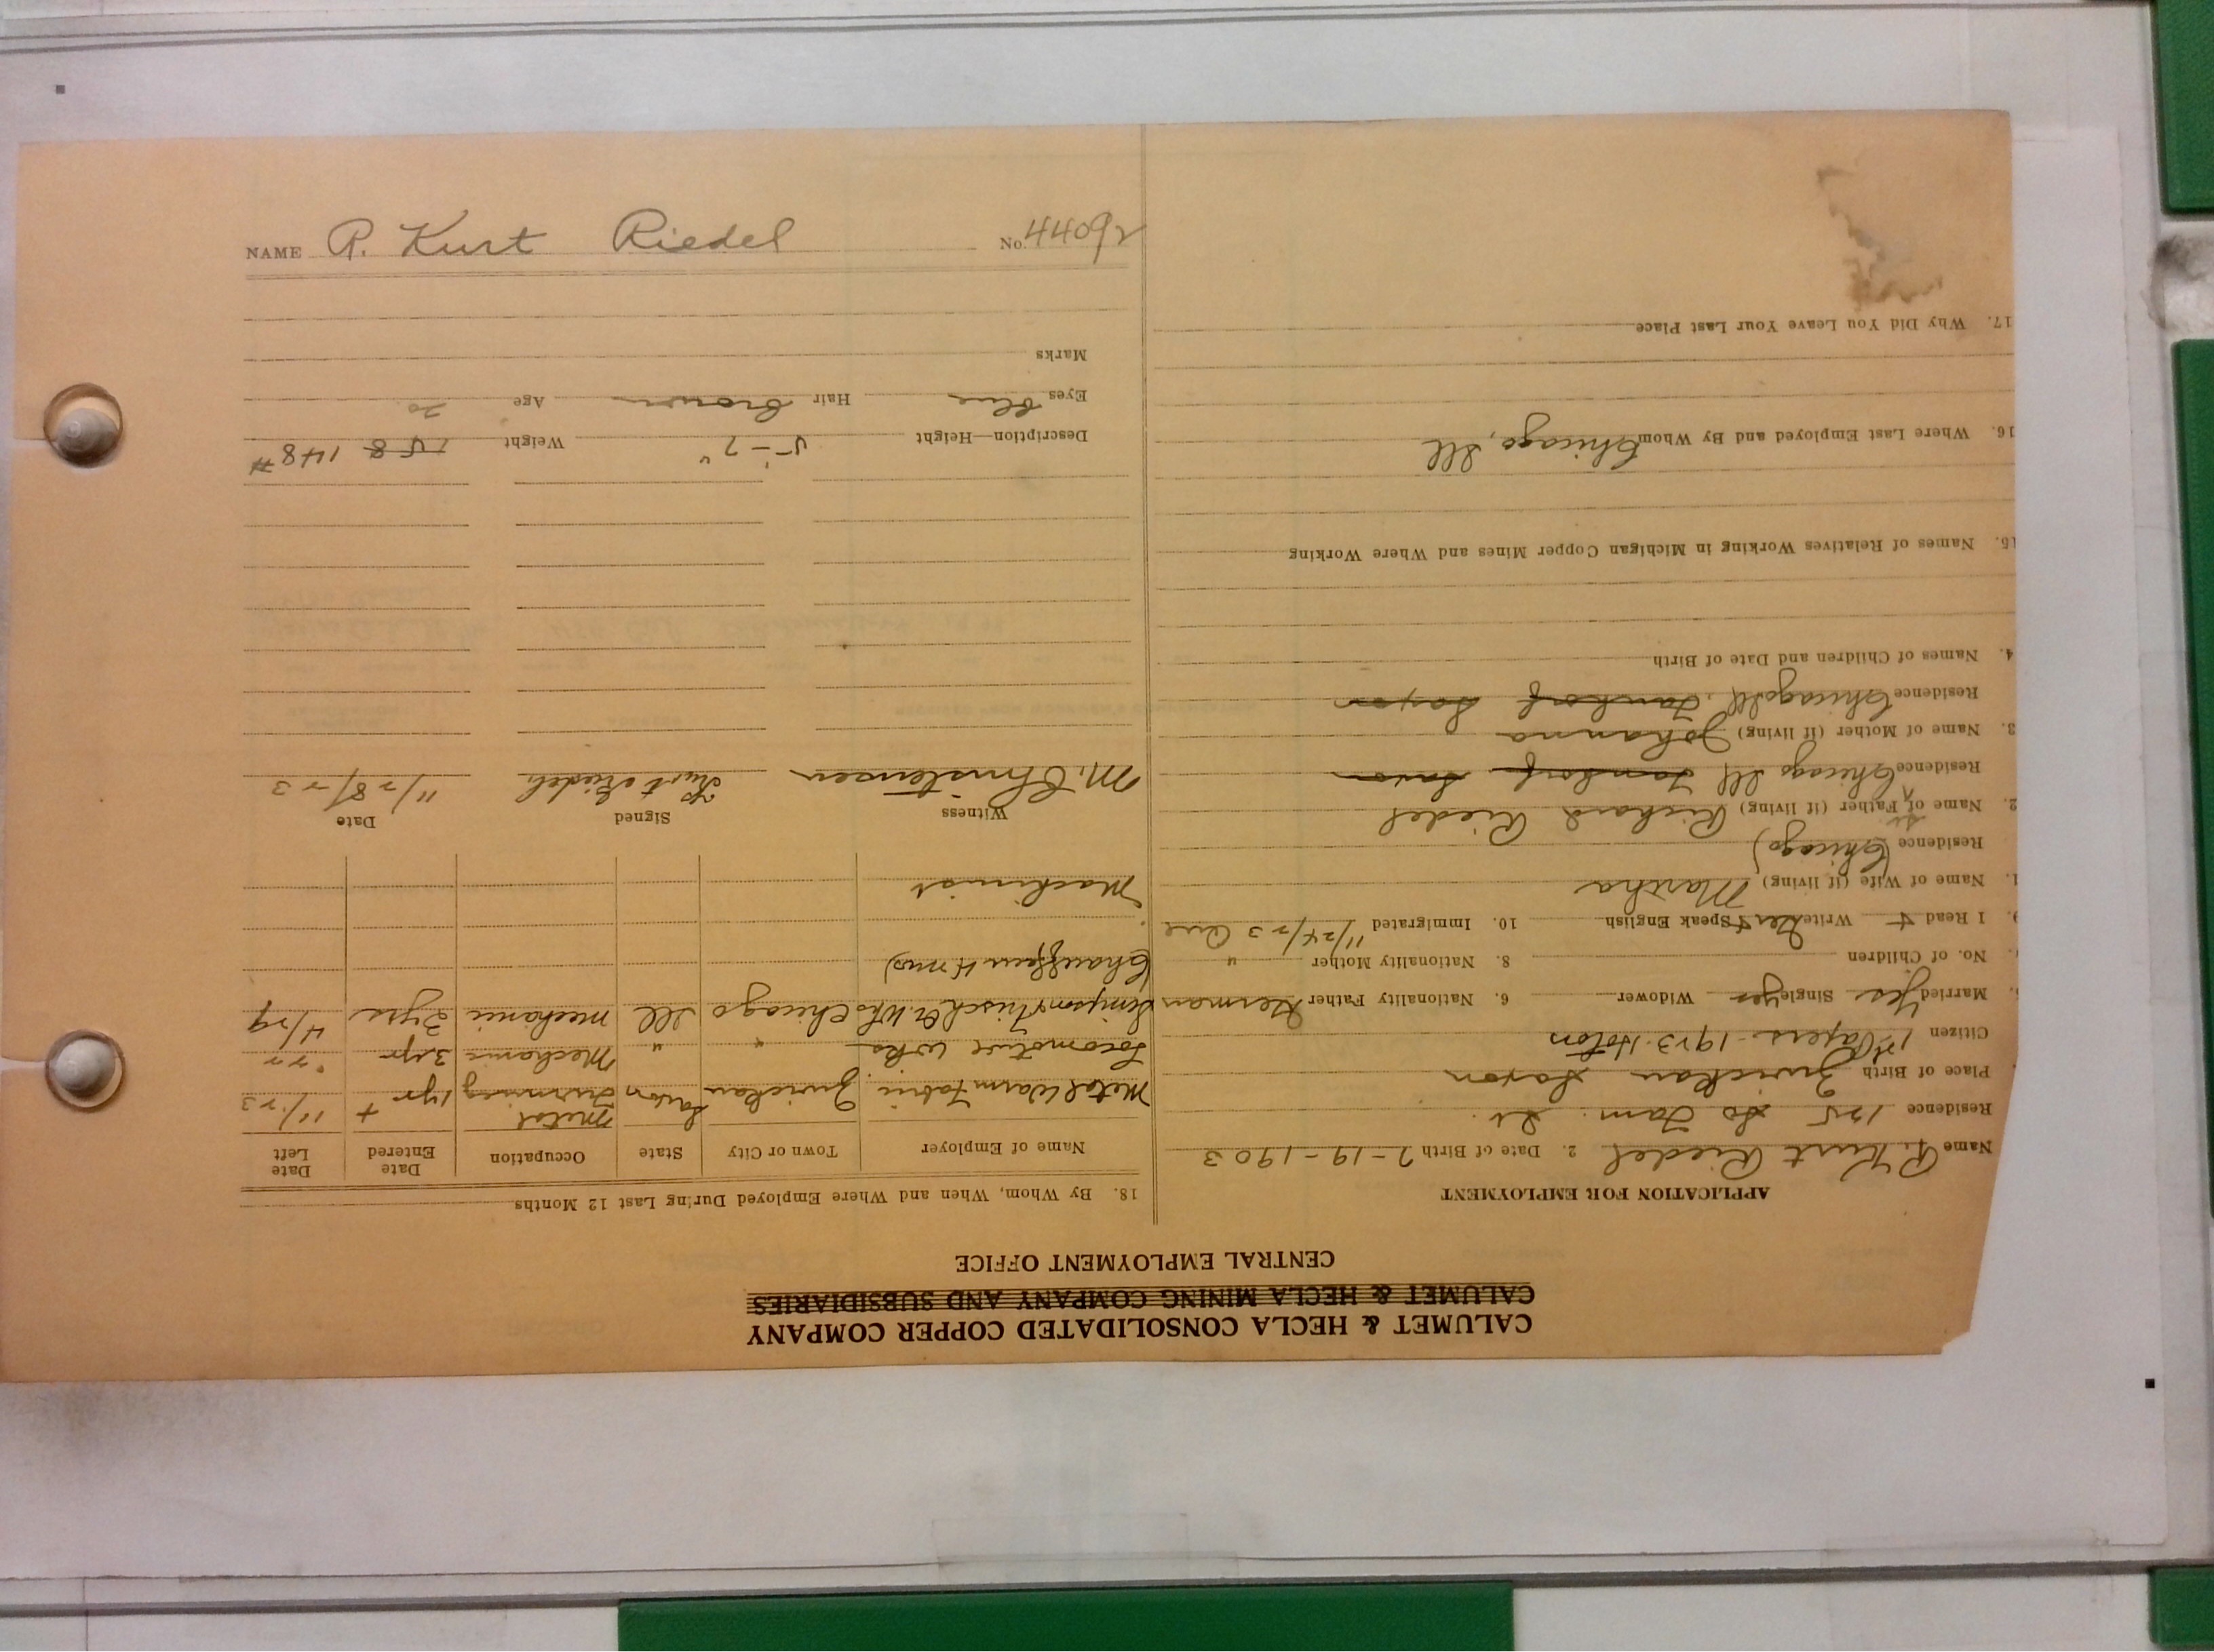 NAME R. Kurt Riedel No. 44092
CALUMET & HECLA CONSOLIDATED COPPER COMPANY
CALUMET & HECLA MINING COMPANY AND SUBSIDIARIES
CENTRAL EMPLOYMENT OFFICE
APPLICATION FOR EMPLOYMENT
Name R. Kurt Riedel 2. Date of Birth 7-19-1903
Residence 125 So Tam. St.
Place of Birth Zwickau Saxon
Citizen 1st Papers-1923-Hoton
Married Yes Single yes Widower 6. Nationality Father German
No. of Children 8. Nationality Mother "
9. I Read + Write Ger + Speak English 10. Immigrated 11/24/23
1. Name of Wife (if living) Martha
Residence (Chicago)
2. Name of Father (if living) Richard Riedel
Residence Chicago Ill
3. Name of Mother (if living) Johanna
Residence Chicago Ill.
4. Names of Children and Date of Birth
15. Names of Relatives Working in Michigan Copper Mines and Where Working
16. Where Last Employed and By Whom Chicago, Ill
17. Why Did You Leave Your Last Place
18. By Whom, When and Where Employed During Last 12 Months
Name of Employer Town or City State Occupation Date Entered Date Left
Metal Warm Fabric. Zwickau Saxon Metal Turning 1 yr + 11/23
Locomotive Wks " " Mechanic 3 yr "22
Chicago Ill Mechanic 2 yrs 4/29
(Chauffeur 4 mos)
Machinist
Witness Signed Date
M. Christensen Kurt Riedel 11/28/23
Description—Height 5'-7" Weight 158 148#
Eyes Blue Hair Brown Age 20
Marks